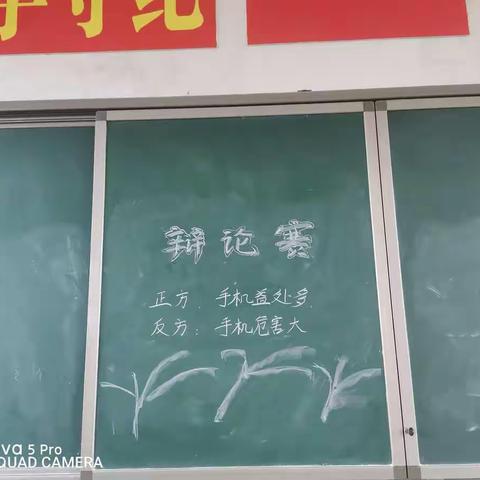 守纪
辩论赛
正方：手机益处多
反方：手机危害大
va 5 Pro
QUAD CAMERA